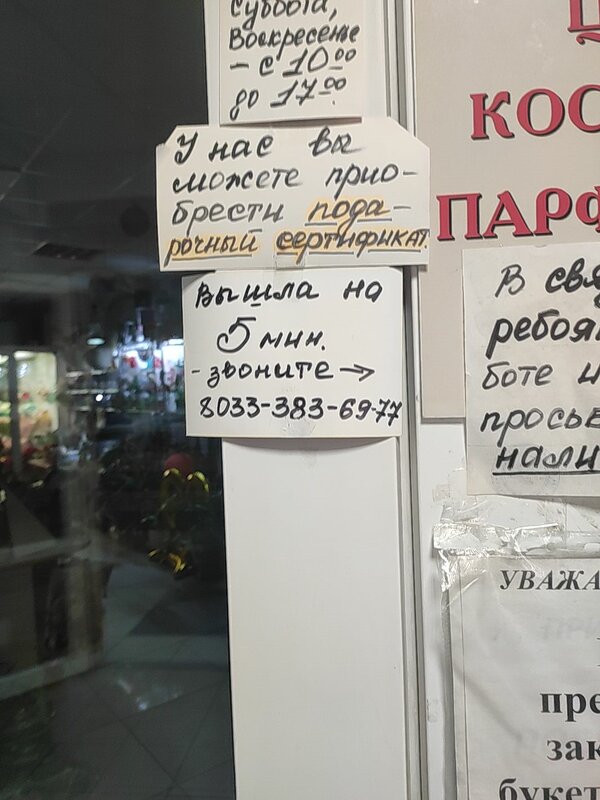 Суббота,
Воскресенье
- с 10⁰⁰
до 17⁰⁰
У нас вы
можете прио-
брести пода-
рочный сертификат.
Вышла на
5 мин.
- звоните →
8033-383-69-77
КОС
ПАРФ
В свя
ребоя
боте и
просьб
нали
УВАЖА
пре
зак
букет